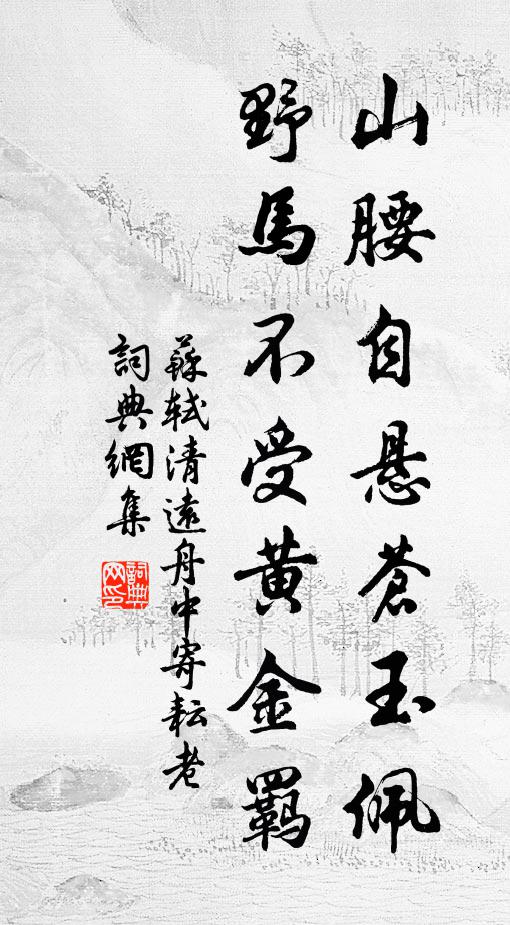 山腰自悬苍玉佩
野馬不受黄金羈
蘇軾清遠舟中寄耘老
詞典網集
詞典网印